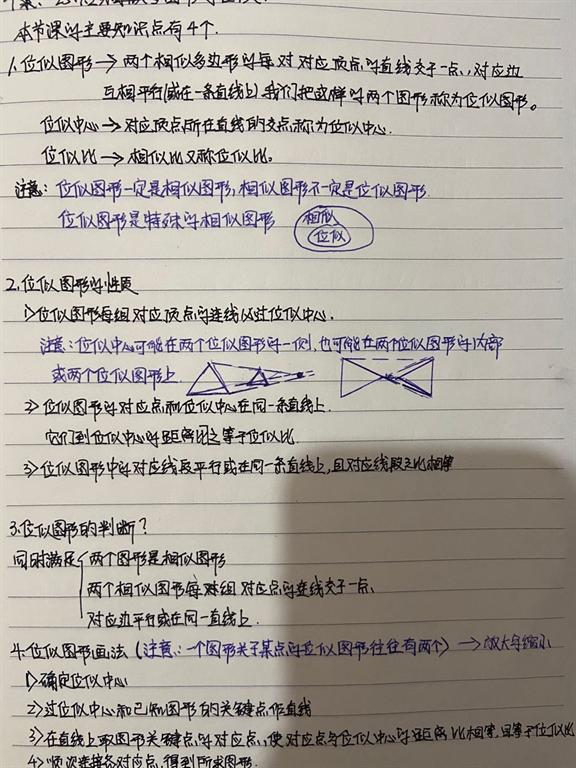 本节课的主要知识点有4个.
1.位似图形→两个相似多边形的每对对应顶点的直线交于一点,对应边
互相平行(或在一条直线上)我们把这样的两个图形称为位似图形。
位似中心→对应顶点所在直线的交点称为位似中心.
位似比→相似比又称位似比。
注意:位似图形一定是相似图形,相似图形不一定是位似图形.
位似图形是特殊的相似图形
相似
位似
2.位似图形的性质
1>位似图形每组对应顶点的连线必过位似中心.
注意:位似中心可能在两个位似图形的一侧,也可能在两个位似图形的内部
或两个位似图形上.
2>位似图形的对应点和位似中心在同一条直线上.
它们到位似中心的距离之比等于位似比
3>位似图形中的对应线段平行或在同一条直线上,且对应线段之比相等
3.位似图形的判断?
同时满足 两个图形是相似图形
两个相似图形每对组对应点的连线交于一点、
对应边平行或在同一直线上.
4.位似图形画法(注意:一个图形关于某点的位似图形往往有两个)→放大与缩小
1>确定位似中心
2>过位似中心和已知图形的关键点作直线
3>在直线上取图形关键点的对应点,使对应点与位似中心的距离比相等.且等于位似比
4>顺次连接各对应点,得到所求图形.